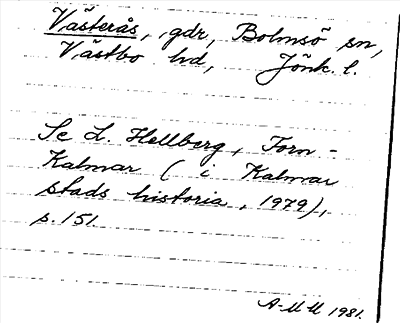 Västerås, gdr, Bolmsö sn,
Västbo hd, Jönk. l.
Se L. Hellberg, Forn-
Kalmar (i Kalmar
stads historia, 1979),
s. 151.
A-MM 1981.